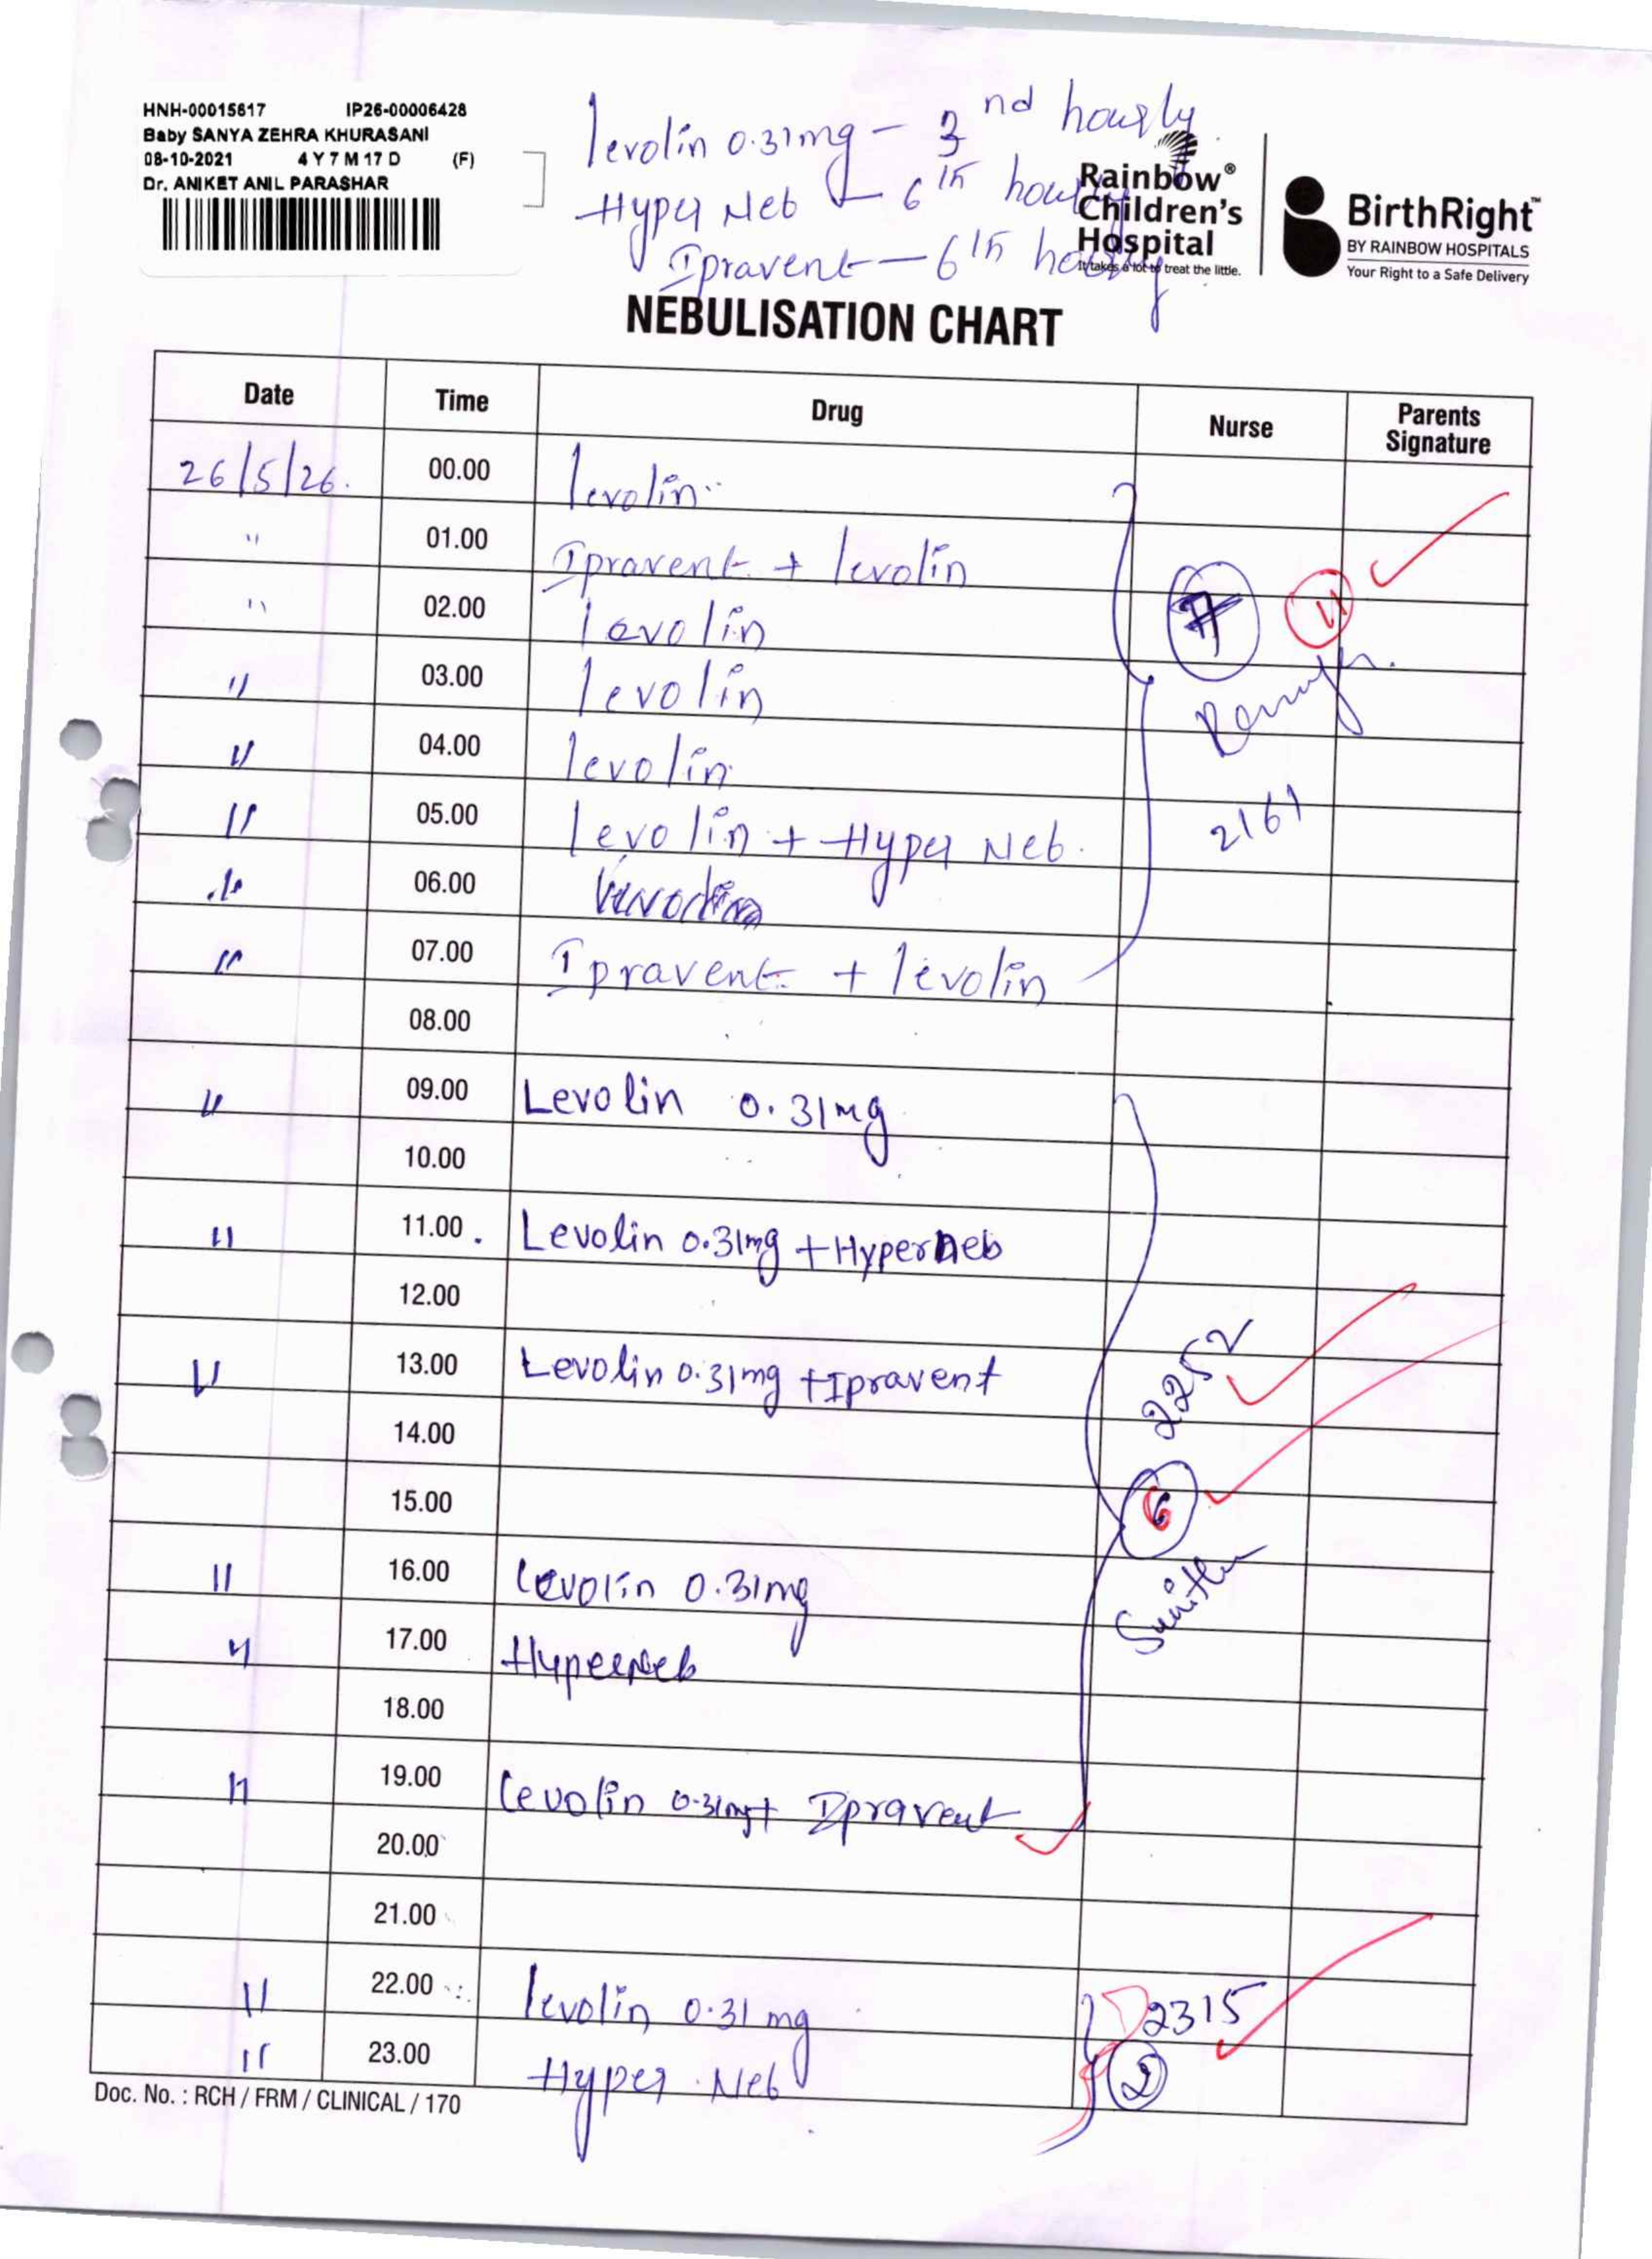 HNH-00015617 IP26-00006428
Baby SANYA ZEHRA KHURASANI
08-10-2021 4 Y 7 M 17 D (F)
Dr. ANIKET ANIL PARASHAR
levolin 0.31mg - 3 nd hourly
Hyper Neb - 6th hourly
Ipravent - 6th hourly
Rainbow®
Children's
Hospital
It takes a lot to treat the little.
BirthRight™
BY RAINBOW HOSPITALS
Your Right to a Safe Delivery
NEBULISATION CHART
Date Time Drug Nurse Parents Signature
26/5/26. 00.00 levolin
" 01.00 Ipravent + levolin
" 02.00 levolin 7 11
" 03.00 levolin
" 04.00 levolin
" 05.00 levolin + Hyper Neb. 2161
" 06.00
" 07.00 Ipravent + levolin
08.00
" 09.00 Levolin 0.31mg
10.00
" 11.00 Levolin 0.31mg + Hyperneb
12.00
" 13.00 Levolin 0.31mg + Ipravent 2252
14.00
15.00 6
" 16.00 Levolin 0.31mg Sunitha
" 17.00 Hyperneb
18.00
" 19.00 Levolin 0.31mg + Ipravent
20.00
21.00
" 22.00 levolin 0.31 mg 2315
" 23.00 Hyper Neb 2
Doc. No. : RCH / FRM / CLINICAL / 170